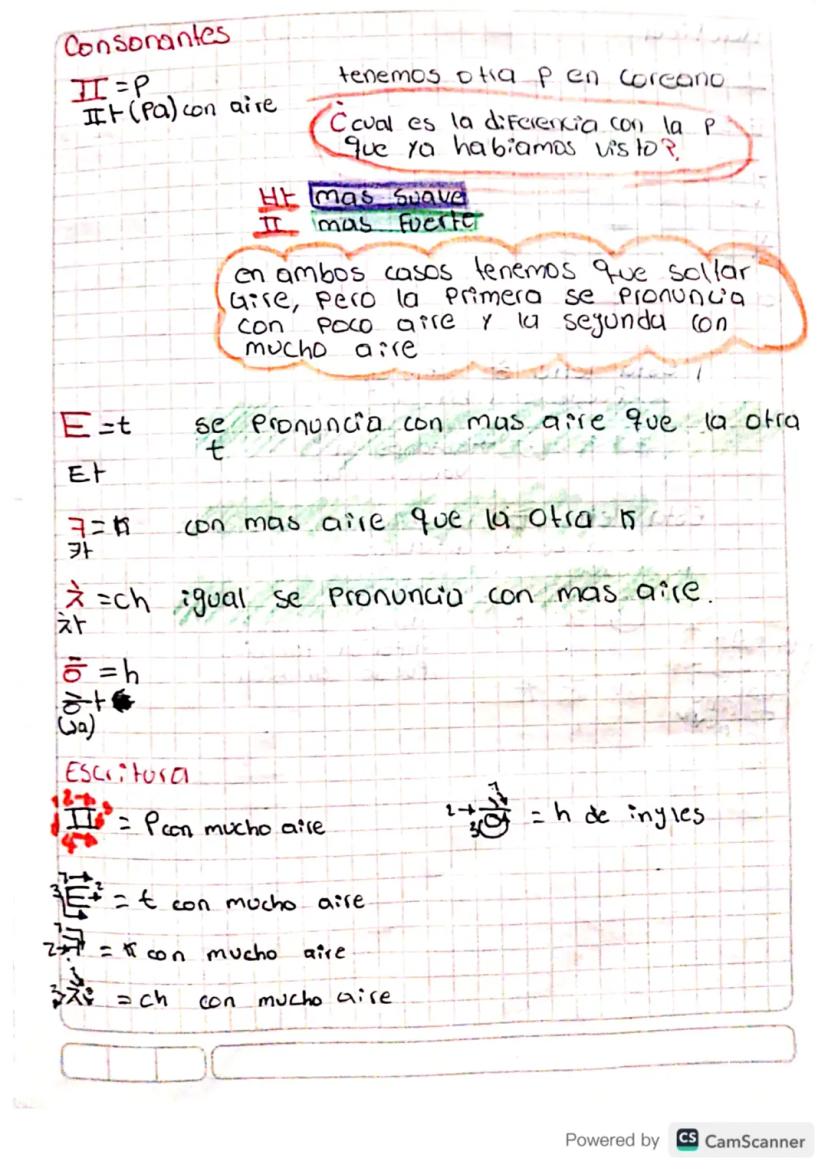 Consonantes
ㅍ = P
파 (Pa) con aire
tenemos otra p en coreano
¿cual es la diferencia con la p
que ya habiamos visto?
바 mas suave
ㅍ mas fuerte
en ambos casos tenemos que sollar
aire, pero la primera se pronuncia
con poco aire y la segunda con
mucho aire
ㅌ = t se pronuncia con mas aire que la otra
t
타
ㅋ = k con mas aire que la otra k
카
ㅊ = ch igual se pronuncia con mas aire.
차
ㅎ = h
하
(Ja)
Escritura
ㅍ = P con mucho aire
ㅎ = h de ingles
ㅌ = t con mucho aire
ㅋ = k con mucho aire
ㅊ = ch con mucho aire
Powered by CS CamScanner